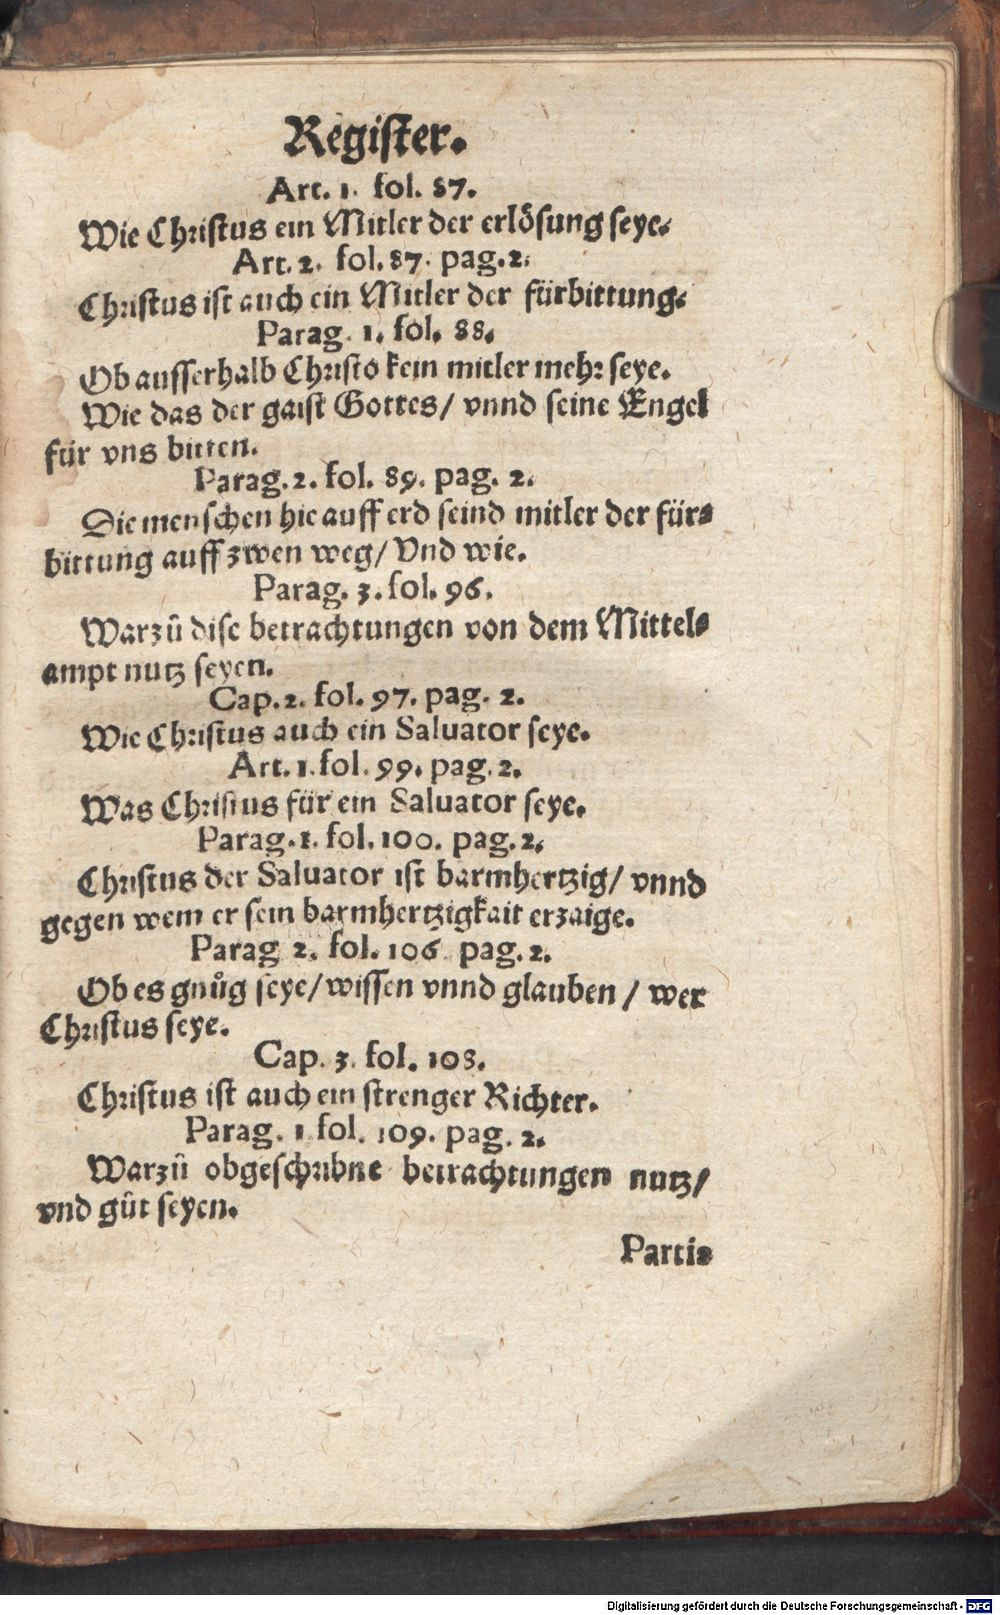 Register.
Art. 1. fol. 87.
Wie Christus ein Mitler der erlösung seye.
Art. 2. fol. 87. pag. 2.
Christus ist auch ein Mitler der fürbittung.
Parag. 1. fol. 88.
Ob ausserhalb Christo kein mitler mehr seye.
Wie das der gaist Gottes/ vnnd seine Engel
für vns bitten.
Parag. 2. fol. 89. pag. 2.
Die menschen hie auff erd seind mitler der für-
bittung auff zwen weg/ Vnd wie.
Parag. 3. fol. 96.
Warzů dise betrachtungen von dem Mittel-
ampt nutz seyen.
Cap. 2. fol. 97. pag. 2.
Wie Christus auch ein Saluator seye.
Art. 1. fol. 99. pag. 2.
Was Christus für ein Saluator seye.
Parag. 1. fol. 100. pag. 2.
Christus der Saluator ist barmhertzig/ vnnd
gegen wem er sein barmhertzigkait erzaige.
Parag 2. fol. 106 pag. 2.
Ob es gnůg seye/ wissen vnnd glauben / wer
Christus seye.
Cap. 3. fol. 108.
Christus ist auch ein strenger Richter.
Parag. 1 fol. 109. pag. 2.
Warzů obgeschribne betrachtungen nutz/
vnd gůt seyen.
Parti-
Digitalisierung gefördert durch die Deutsche Forschungsgemeinschaft - DFG